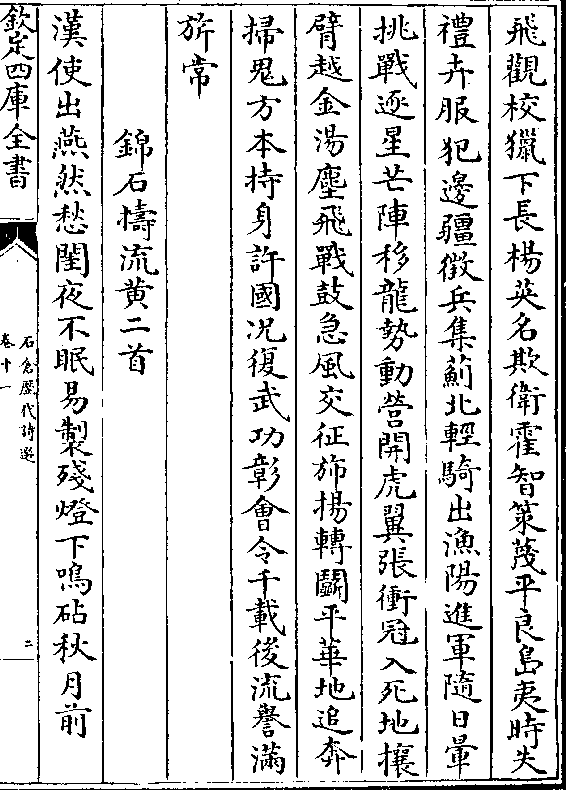 飛觀校獵下長楊英名欺衛霍智策蔑平良島夷時失
禮卉服犯邊疆徵兵集薊北輕騎出漁陽進軍隨日暈
挑戰逐星芒陣移龍勢動營開虎翼張衝冠入死地攘
臂越金湯塵飛戰鼓急風交征斾揚轉鬭平華地追奔
掃鬼方本持身許國况復武功彰會令千載後流譽滿
旂常
錦石擣流黄二首
漢使出燕然愁閨夜不眠易製殘燈下鳴砧秋月前
欽定四庫全書
石倉歷代詩選
卷十一
二